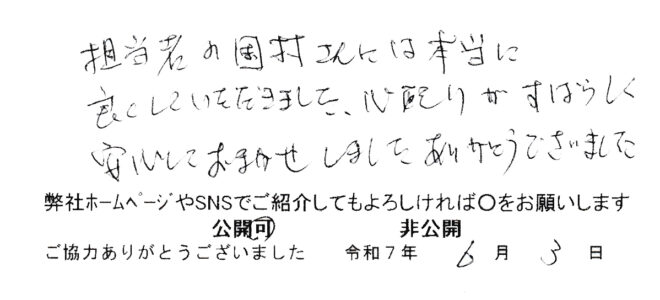 担当者の国村さんには本当に
良くしていただきました、心配りがすばらしく
安心しておまかせしましたありがとうございました
弊社ホームページやSNSでご紹介してもよろしければ○をお願いします
公開可 非公開
ご協力ありがとうございました 令和7年 6月 3日